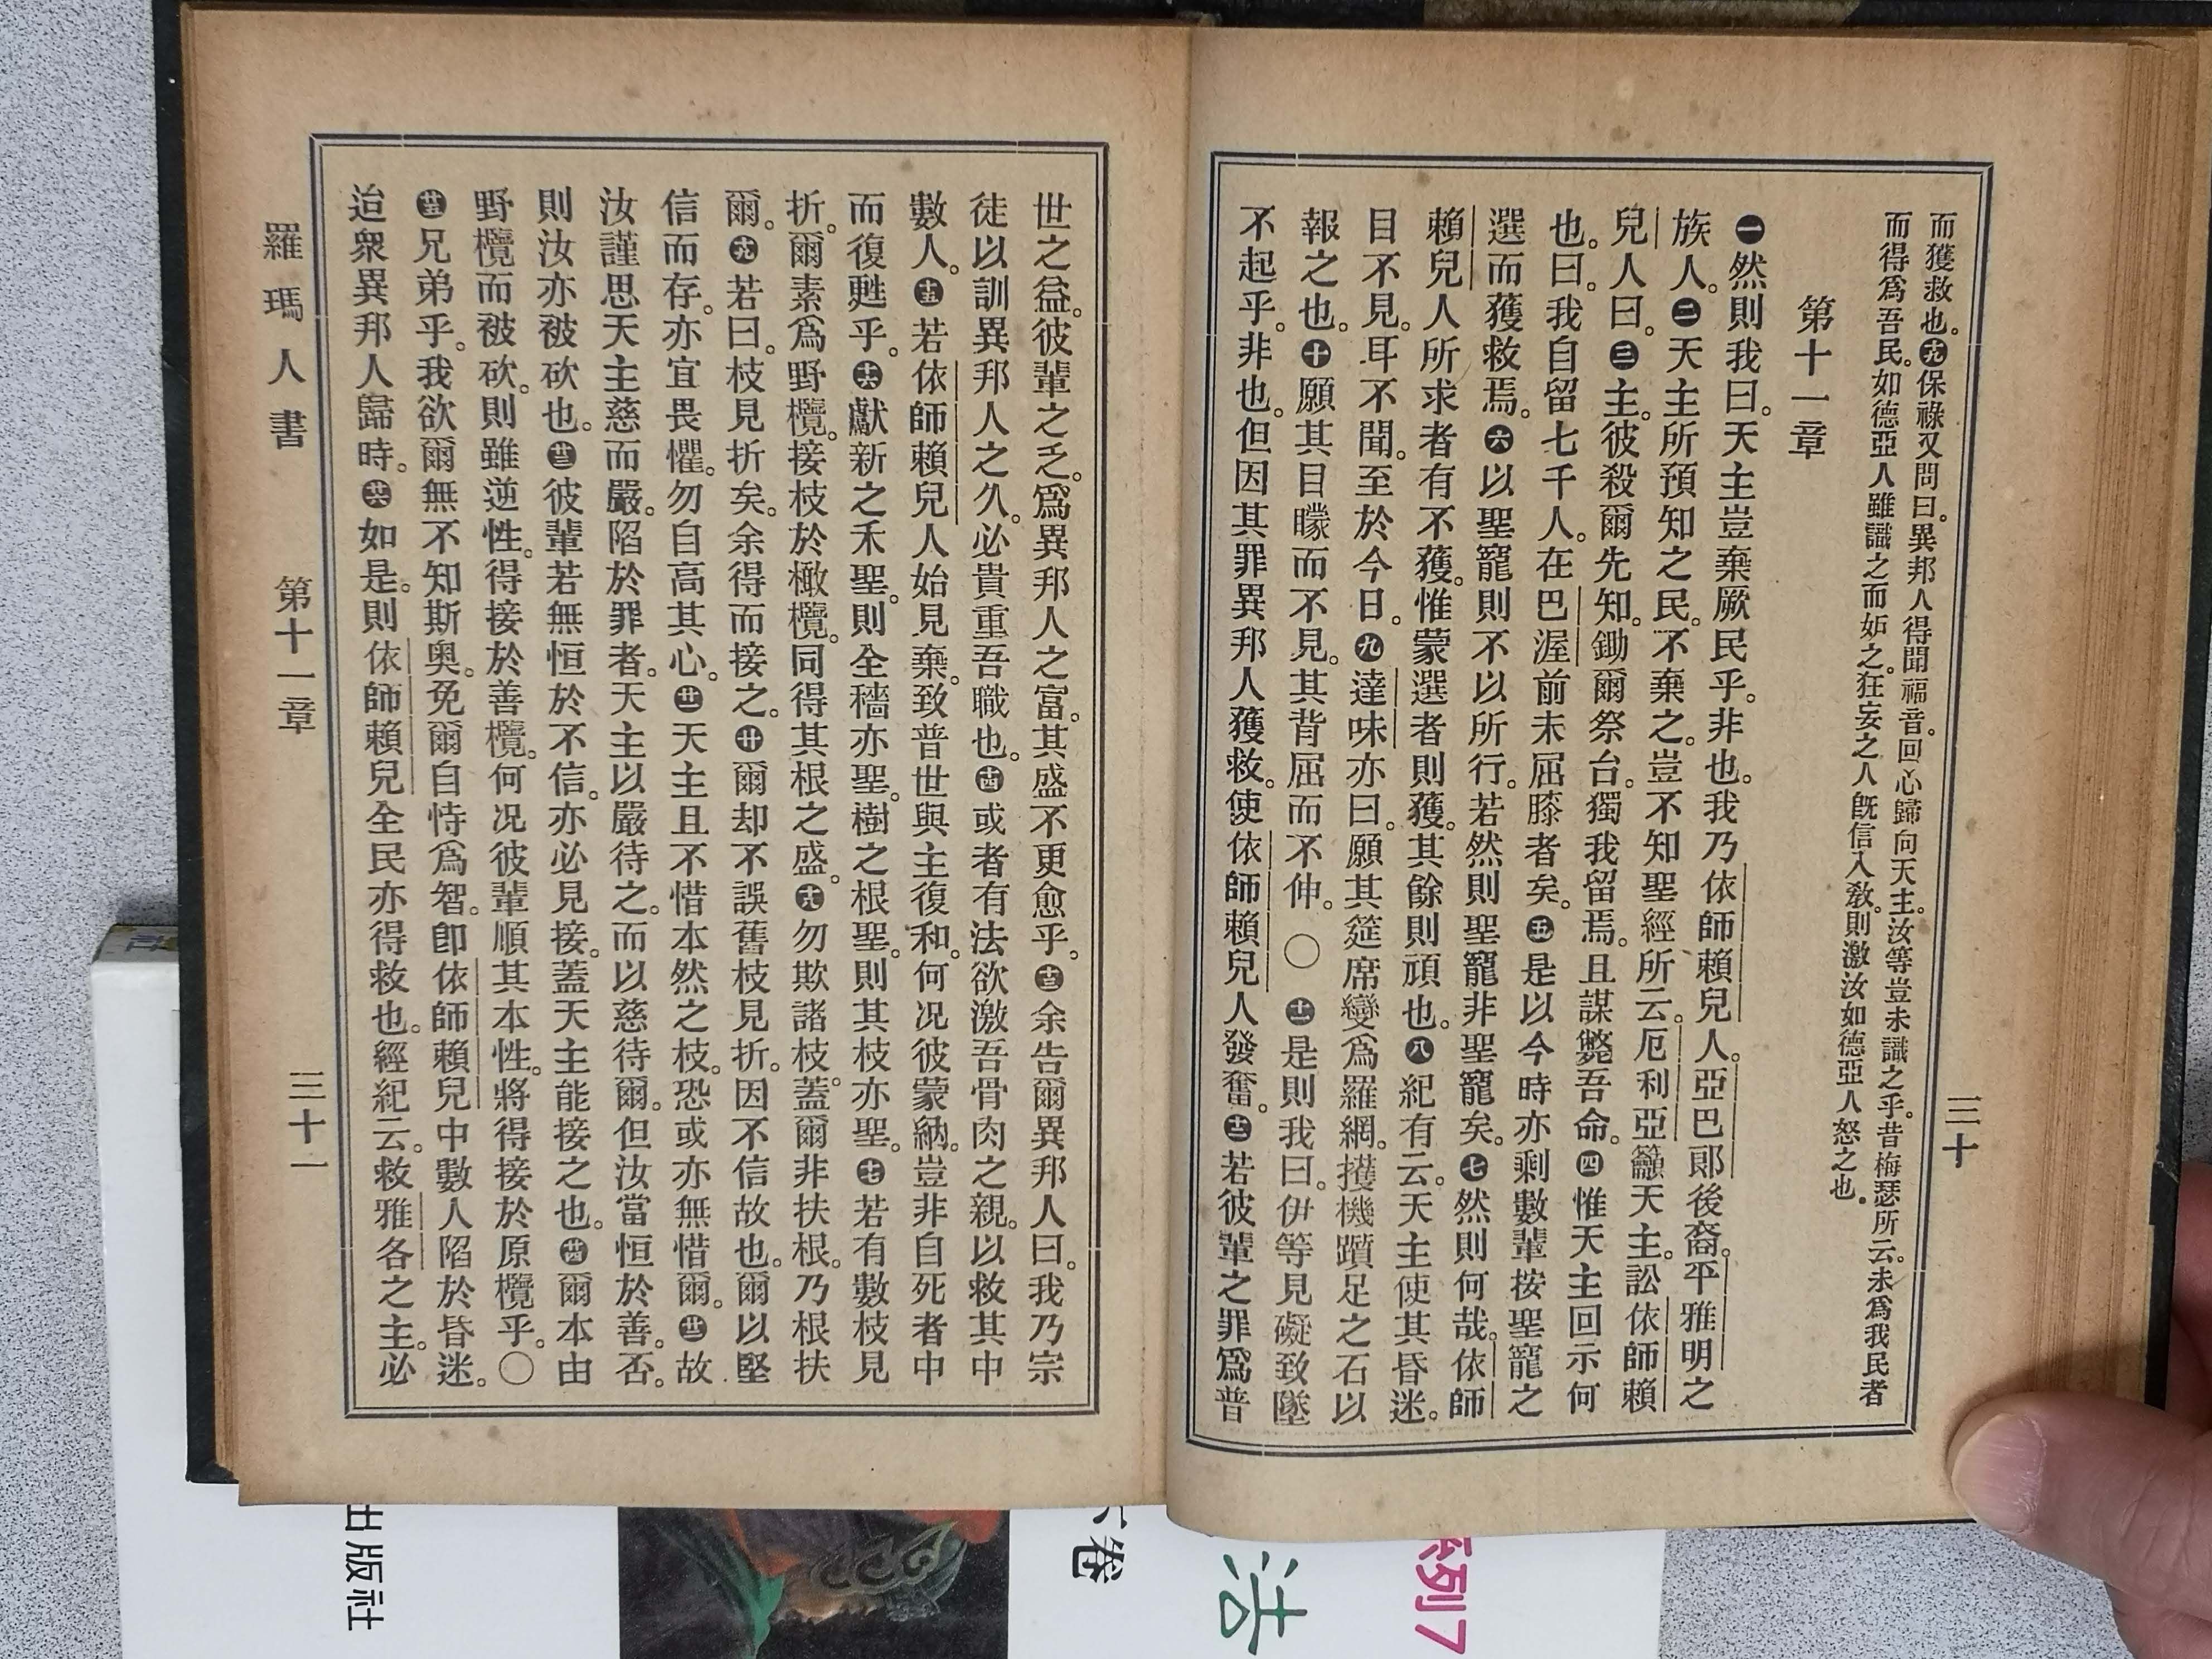 三十
而獲救也。十九保祿又問曰。異邦人得聞福音。回心歸向天主。汝等豈未識之乎。昔梅瑟所云。未爲我民者
而得爲吾民。如德亞人雖識之而妬之。狂妄之人旣信入敎。則激汝如德亞人怒之也。
第十一章
一然則我曰。天主豈棄厥民乎。非也。我乃依師賴兒人。亞巴郎後裔。平雅明之
族人。二天主所預知之民。不棄之。豈不知聖經所云。厄利亞籲天主。訟依師賴
兒人曰。三主。彼殺爾先知。鋤爾祭台。獨我留焉。且謀斃吾命。四惟天主回示何
也。曰。我自留七千人。在巴渥前未屈膝者矣。五是以今時亦剩數輩按聖寵之
選而獲救焉。六以聖寵則不以所行。若然則聖寵非聖寵矣。七然則何哉。依師
賴兒人所求者有不獲。惟蒙選者則獲。其餘則頑也。八紀有云。天主使其昏迷。
目不見。耳不聞。至於今日。九達味亦曰。願其筵席變爲羅網。擭機躓足之石以
報之也。十願其目矇而不見。其背屈而不伸。〇十一是則我曰。伊等見礙致墜
不起乎。非也。但因其罪異邦人獲救。使依師賴兒人發奮。十二若彼輩之罪爲普
世之益。彼輩之乏。爲異邦人之富。其盛不更愈乎。十三余告爾異邦人曰。我乃宗
徒以訓異邦人之久。必貴重吾職也。十四或者有法欲激吾骨肉之親。以救其中
數人。十五若依師賴兒人始見棄。致普世與主復和。何况彼蒙納。豈非自死者中
而復甦乎。十六獻新之禾聖。則全穡亦聖。樹之根聖。則其枝亦聖。十七若有數枝見
折。爾素爲野欖。接枝於橄欖。同得其根之盛。十八勿欺諸枝。蓋爾非扶根。乃根扶
爾。十九若曰。枝見折矣。余得而接之。二十爾却不誤。舊枝見折。因不信故也。爾以堅
信而存。亦宜畏懼。勿自高其心。廿一天主且不惜本然之枝。恐或亦無惜爾。廿二故
汝謹思天主慈而嚴。陷於罪者。天主以嚴待之。而以慈待爾。但汝當恒於善。否。
則汝亦被砍也。廿三彼輩若無恒於不信。亦必見接。蓋天主能接之也。廿四爾本由
野欖而被砍。則雖逆性。得接於善欖。何况彼輩順其本性。將得接於原欖乎。〇
廿五兄弟乎。我欲爾無不知斯奥。免爾自恃爲智。卽依師賴兒中數人陷於昏迷。
迨衆異邦人歸時。廿六如是。則依師賴兒全民亦得救也。經紀云。救雅各之主。必
羅瑪人書 第十一章 三十一
出版社
下卷
活
系列7